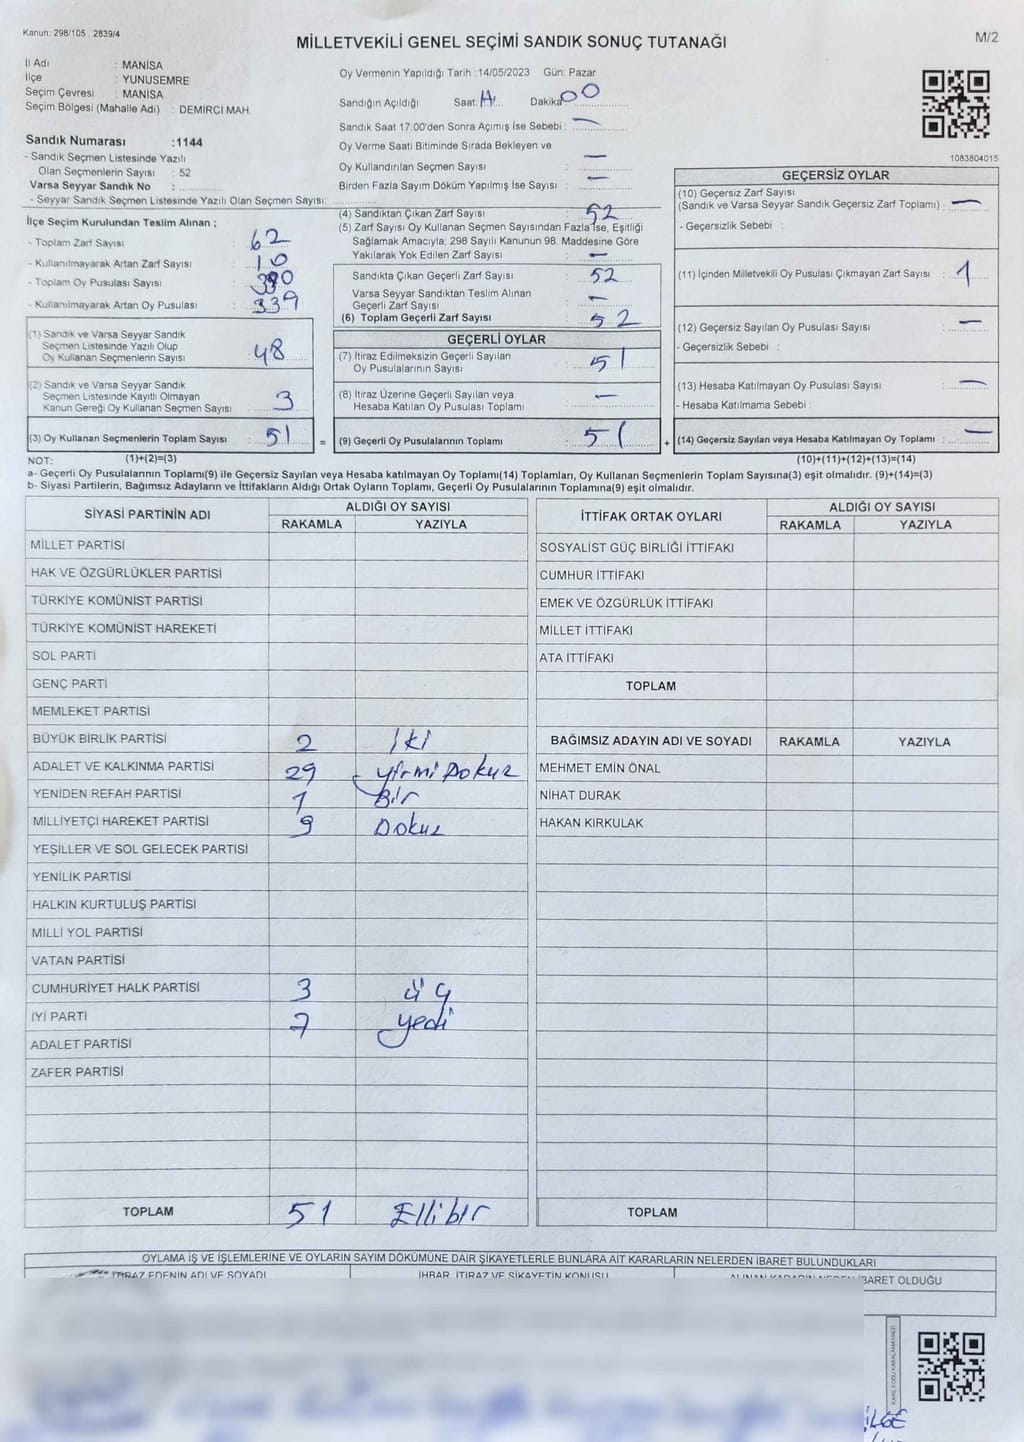 Kanun: 298/105 , 2839/4
MİLLETVEKİLİ GENEL SEÇİMİ SANDIK SONUÇ TUTANAĞI
M/2
İl Adı : MANİSA
İlçe : YUNUSEMRE
Seçim Çevresi : MANİSA
Seçim Bölgesi (Mahalle Adı) : DEMİRCİ MAH.
Sandık Numarası :1144
- Sandık Seçmen Listesinde Yazılı
Olan Seçmenlerin Sayısı : 52
Varsa Seyyar Sandık No :
- Seyyar Sandık Seçmen Listesinde Yazılı Olan Seçmen Sayısı:
Oy Vermenin Yapıldığı Tarih :14/05/2023 Gün: Pazar
Sandığın Açıldığı Saat: Dakika: 00
Sandık Saat 17:00'den Sonra Açımış İse Sebebi : —
Oy Verme Saati Bitiminde Sırada Bekleyen ve
Oy Kullandırılan Seçmen Sayısı : —
Birden Fazla Sayım Döküm Yapılmış İse Sayısı : —
1083804015
İlçe Seçim Kurulundan Teslim Alınan ;
- Toplam Zarf Sayısı : 62
- Kullanılmayarak Artan Zarf Sayısı : 10
- Toplam Oy Pusulası Sayısı : 390
- Kullanılmayarak Artan Oy Pusulası : 339
(1) Sandık ve Varsa Seyyar Sandık
Seçmen Listesinde Yazılı Olup
Oy Kullanan Seçmenlerin Sayısı : 48
(2) Sandık ve Varsa Seyyar Sandık
Seçmen Listesinde Kayıtlı Olmayan
Kanun Gereği Oy Kullanan Seçmen Sayısı : 3
(3) Oy Kullanan Seçmenlerin Toplam Sayısı : 51 =
(4) Sandıktan Çıkan Zarf Sayısı : 52
(5) Zarf Sayısı Oy Kullanan Seçmen Sayısından Fazla İse, Eşitliği
Sağlamak Amacıyla; 298 Sayılı Kanunun 98. Maddesine Göre
Yakılarak Yok Edilen Zarf Sayısı : —
Sandıkta Çıkan Geçerli Zarf Sayısı : 52
Varsa Seyyar Sandıktan Teslim Alınan
Geçerli Zarf Sayısı : —
(6) Toplam Geçerli Zarf Sayısı : 52
GEÇERLİ OYLAR
(7) İtiraz Edilmeksizin Geçerli Sayılan
Oy Pusulalarının Sayısı : 51
(8) İtiraz Üzerine Geçerli Sayılan veya
Hesaba Katılan Oy Pusulası Toplamı : —
(9) Geçerli Oy Pusulalarının Toplamı : 51 +
GEÇERSİZ OYLAR
(10) Geçersiz Zarf Sayısı
(Sandık ve Varsa Seyyar Sandık Geçersiz Zarf Toplamı) : —
- Geçersizlik Sebebi :
(11) İçinden Milletvekili Oy Pusulası Çıkmayan Zarf Sayısı : 1
(12) Geçersiz Sayılan Oy Pusulası Sayısı : —
- Geçersizlik Sebebi :
(13) Hesaba Katılmayan Oy Pusulası Sayısı : —
- Hesaba Katılmama Sebebi :
(14) Geçersiz Sayılan veya Hesaba Katılmayan Oy Toplamı : —
NOT: (1)+(2)=(3) (10)+(11)+(12)+(13)=(14)
a- Geçerli Oy Pusulalarının Toplamı(9) ile Geçersiz Sayılan veya Hesaba katılmayan Oy Toplamı(14) Toplamları, Oy Kullanan Seçmenlerin Toplam Sayısına(3) eşit olmalıdır. (9)+(14)=(3)
b- Siyasi Partilerin, Bağımsız Adayların ve İttifakların Aldığı Ortak Oyların Toplamı, Geçerli Oy Pusulalarının Toplamına(9) eşit olmalıdır.
SİYASİ PARTİNİN ADI ALDIĞI OY SAYISI
RAKAMLA YAZIYLA
MİLLET PARTİSİ
HAK VE ÖZGÜRLÜKLER PARTİSİ
TÜRKİYE KOMÜNİST PARTİSİ
TÜRKİYE KOMÜNİST HAREKETİ
SOL PARTİ
GENÇ PARTİ
MEMLEKET PARTİSİ
BÜYÜK BİRLİK PARTİSİ 2 iki
ADALET VE KALKINMA PARTİSİ 29 yirmi Dokuz
YENİDEN REFAH PARTİSİ 1 Bir
MİLLİYETÇİ HAREKET PARTİSİ 9 Dokuz
YEŞİLLER VE SOL GELECEK PARTİSİ
YENİLİK PARTİSİ
HALKIN KURTULUŞ PARTİSİ
MİLLİ YOL PARTİSİ
VATAN PARTİSİ
CUMHURİYET HALK PARTİSİ 3 üç
İYİ PARTİ 7 yedi
ADALET PARTİSİ
ZAFER PARTİSİ
TOPLAM 51 Ellibir
İTTİFAK ORTAK OYLARI ALDIĞI OY SAYISI
RAKAMLA YAZIYLA
SOSYALİST GÜÇ BİRLİĞİ İTTİFAKI
CUMHUR İTTİFAKI
EMEK VE ÖZGÜRLÜK İTTİFAKI
MİLLET İTTİFAKI
ATA İTTİFAKI
TOPLAM
BAĞIMSIZ ADAYIN ADI VE SOYADI RAKAMLA YAZIYLA
MEHMET EMİN ÖNAL
NİHAT DURAK
HAKAN KIRKULAK
TOPLAM
OYLAMA İŞ VE İŞLEMLERİNE VE OYLARIN SAYIM DÖKÜMÜNE DAİR ŞİKAYETLERLE BUNLARA AİT KARARLARIN NELERDEN İBARET BULUNDUKLARI
İTİRAZ EDENİN ADI VE SOYADI İHBAR, İTİRAZ VE ŞİKAYETİN KONUSU ALINAN KARARIN NEDEN İBARET OLDUĞU